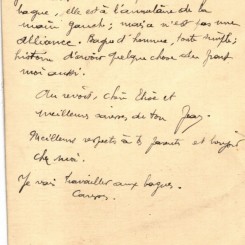 bague, elle est à l'annulaire de la
main gauche; mais ce n'est pas une
alliance. Bague d'homme, toute simple;
histoire d'avoir quelque chose du front
moi aussi.
Au revoir, chère et
meilleurs de ton Jean.
Meilleurs respects à tes parents et bonjour
chez moi.
Je vais travailler aux bagues.